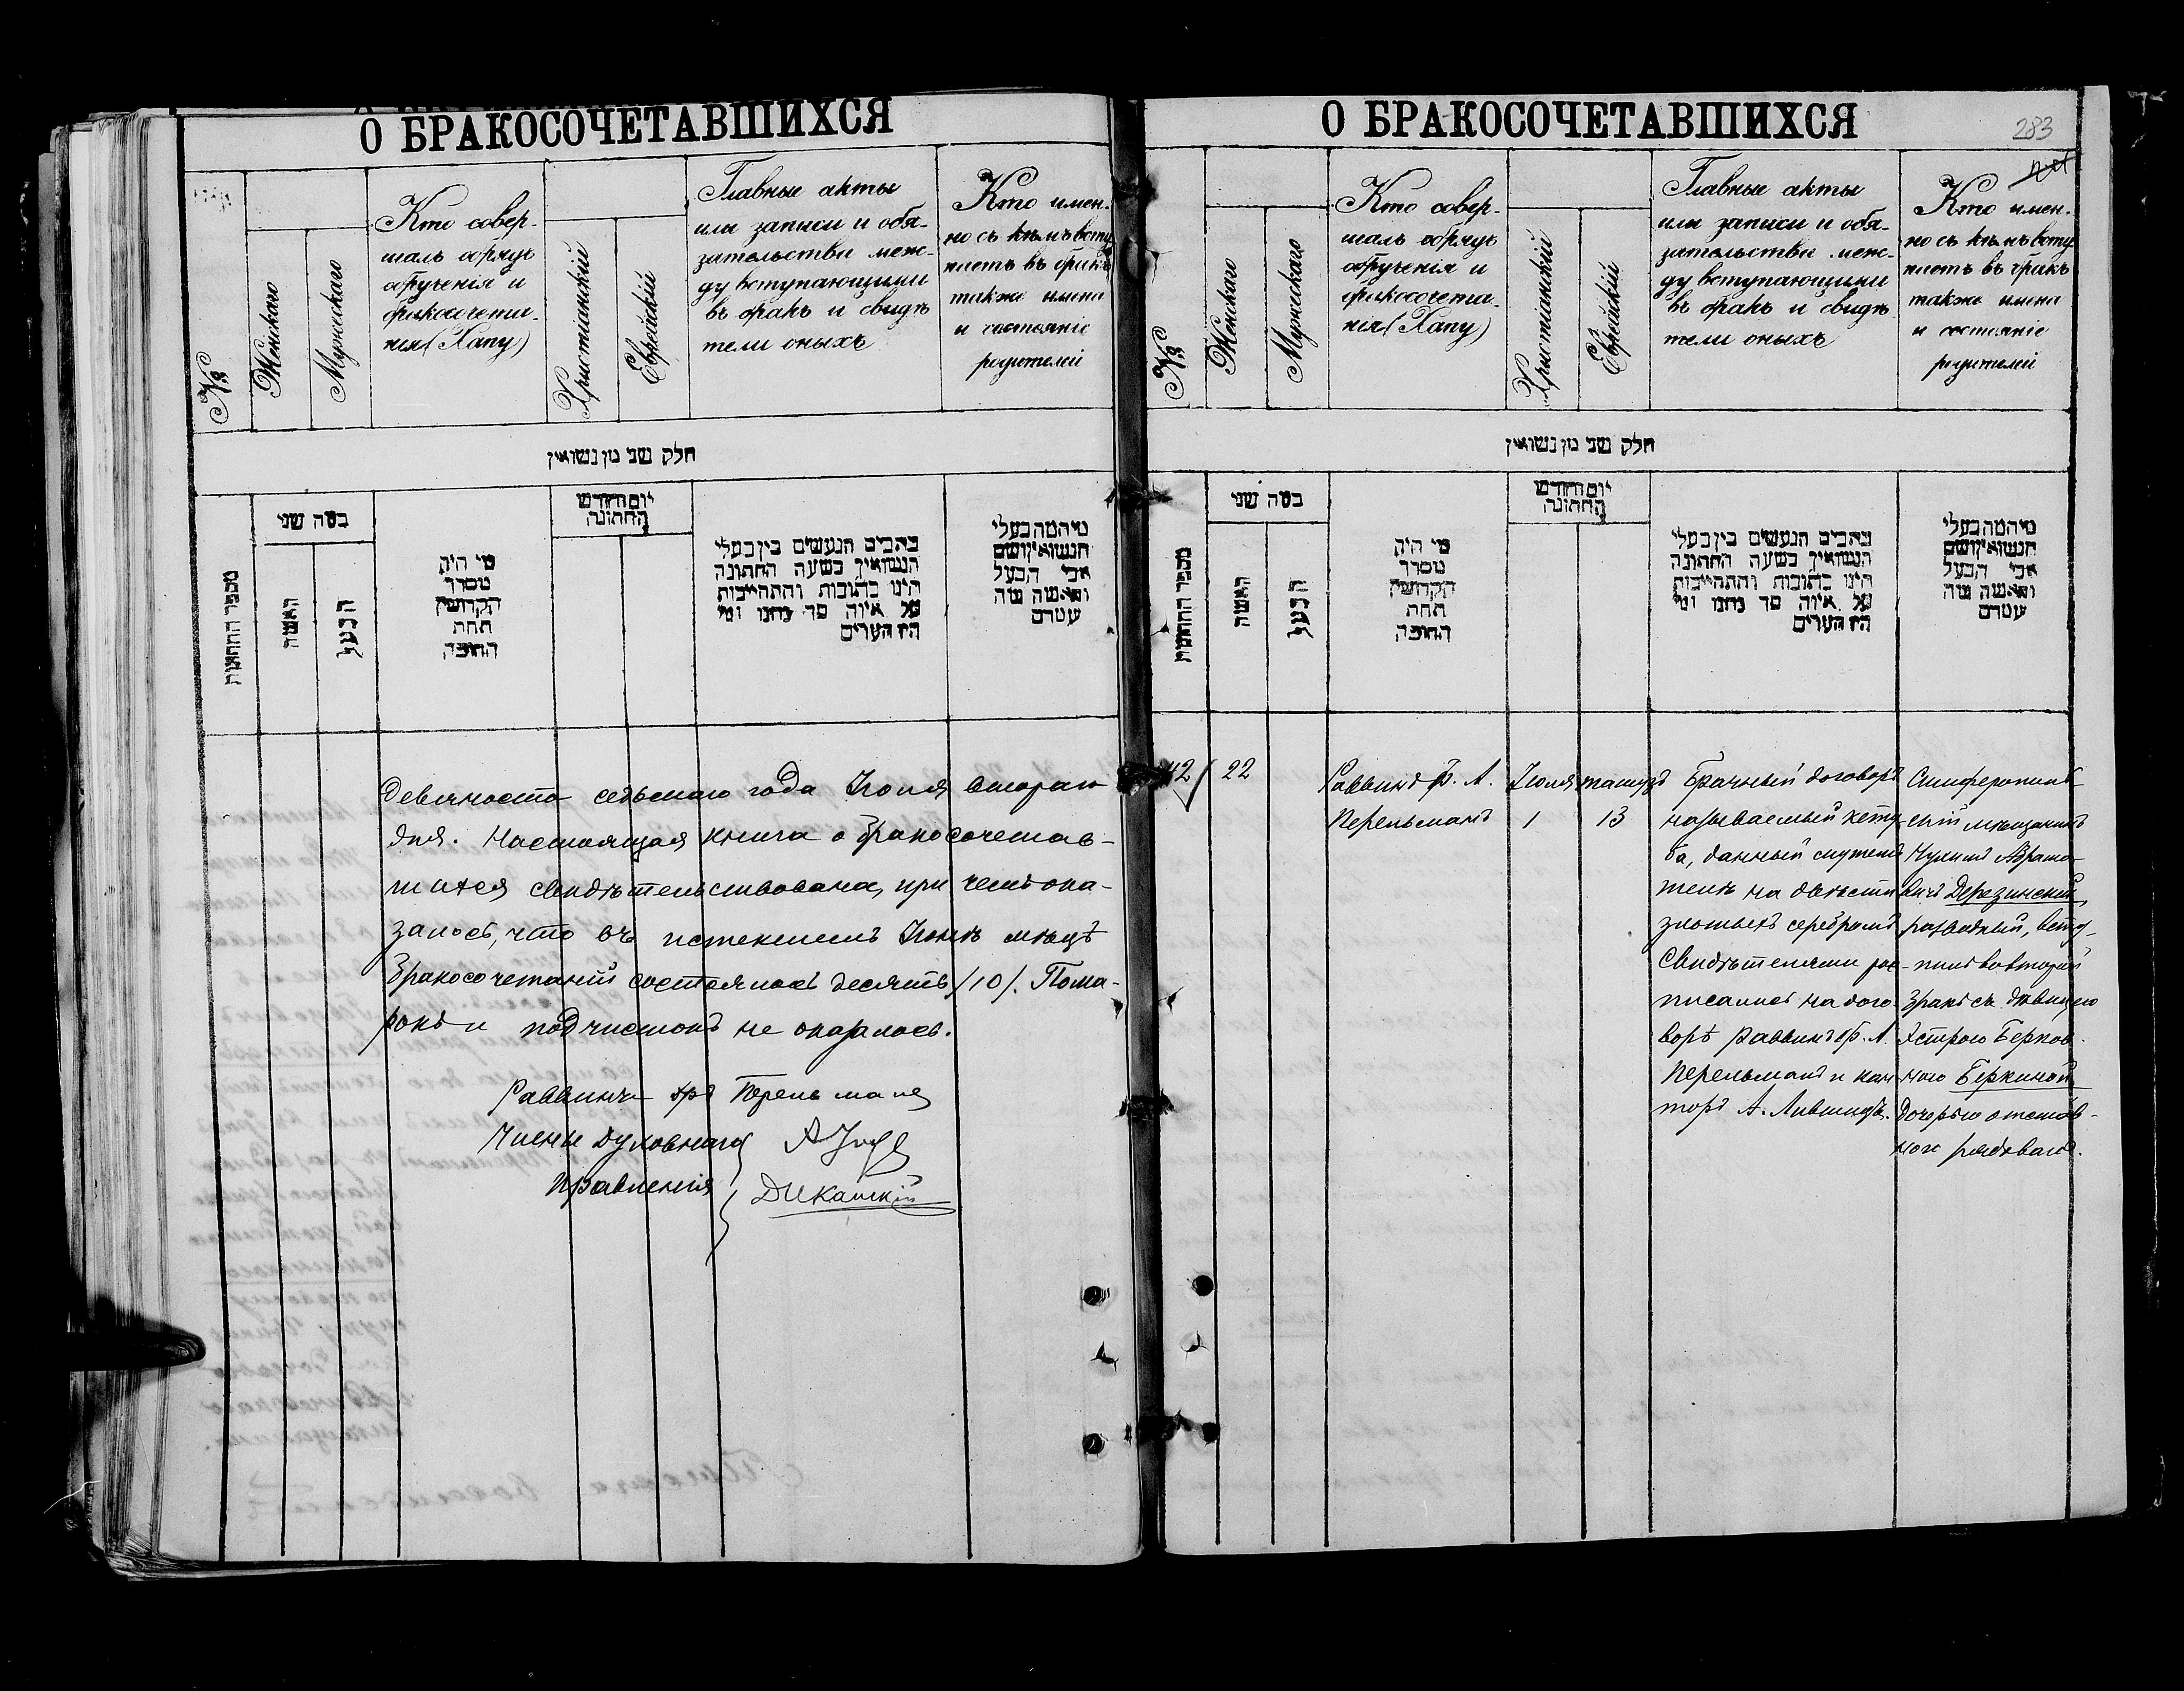 О БРАКОСОЧЕТАВШИХСЯ
№
Женскаго
Мужескаго
Кто совер-
шалъ обрядъ
обрученія и
бракосочета-
нія (Хапу)
Христіанскій
Еврейскій
Главные акты
или записи и обя-
зательства меж-
ду вступающими
въ бракъ и свидѣ
тели оныхъ
Кто имен-
но съ кѣмъ всту
паетъ въ бракъ
также имена
и состояніе
родителей
חלק שני מן נשואין
מספר החתונות
במה שני
האשה
הבעל
מי היה
מסדר
הקדושין
תחת
החופה
יום וחודש
החתונה
כתבים הנעשים בין בעלי
הנשואין בשעה החתונה
היינו כתובות והתחייבות
על איזה סך נתנו ומי
היו העדים
מי המה בעלי
הנשואין ושם
אבי הבעל
והאשה מה
מעמדם
Девяносто седьмого года Іюля втораго
дня. Настоящая книга о бракосочетав-
шихся свидѣтельствована, при чемъ ока-
залось, что въ истекшемъ Іюнѣ мѣсяцѣ
бракосочетаній состоялось десять /10/. Пома-
рокъ и подчистокъ не оказалось.
Раввинъ Перельманъ
Члены духовнаго
Правленія
О БРАКОСОЧЕТАВШИХСЯ
283
№
Женскаго
Мужескаго
Кто совер-
шалъ обрядъ
обрученія и
бракосочета-
нія (Хапу)
Христіанскій
Еврейскій
Главные акты
или записи и обя-
зательства меж-
ду вступающими
въ бракъ и свидѣ
тели оныхъ
Кто имен-
но съ кѣмъ всту
паетъ въ бракъ
также имена
и состояніе
родителей
חלק שני מן נשואין
מספר החתונות
במה שני
האשה
הבעל
מי היה
מסדר
הקדושין
תחת
החופה
יום וחודש
החתונה
כתבים הנעשים בין בעלי
הנשואין בשעה החתונה
היינו כתובות והתחייבות
על איזה סך נתנו ומי
היו העדים
מי המה בעלי
הנשואין ושם
אבי הבעל
והאשה מה
מעמדם
42
22
Раввинъ Ф. А.
Перельманъ
Іюля
1
тамузъ
13
Брачный договоръ
называемый кету
ба, данный
на двѣсти
злотыхъ серебромъ
Свидѣтелями рос-
писались на дого-
ворѣ раввинъ Ф. А.
Перельманъ и кан-
торъ А. Лившицъ.
Симферополь-
скій мѣщанинъ
Абрамо-
вичъ Дерезинскій
разводный, всту-
пилъ во вторый
бракъ съ дѣвицею
Эстрою Берков-
ною Беркиной
дочерью отстав-
ного рядового.